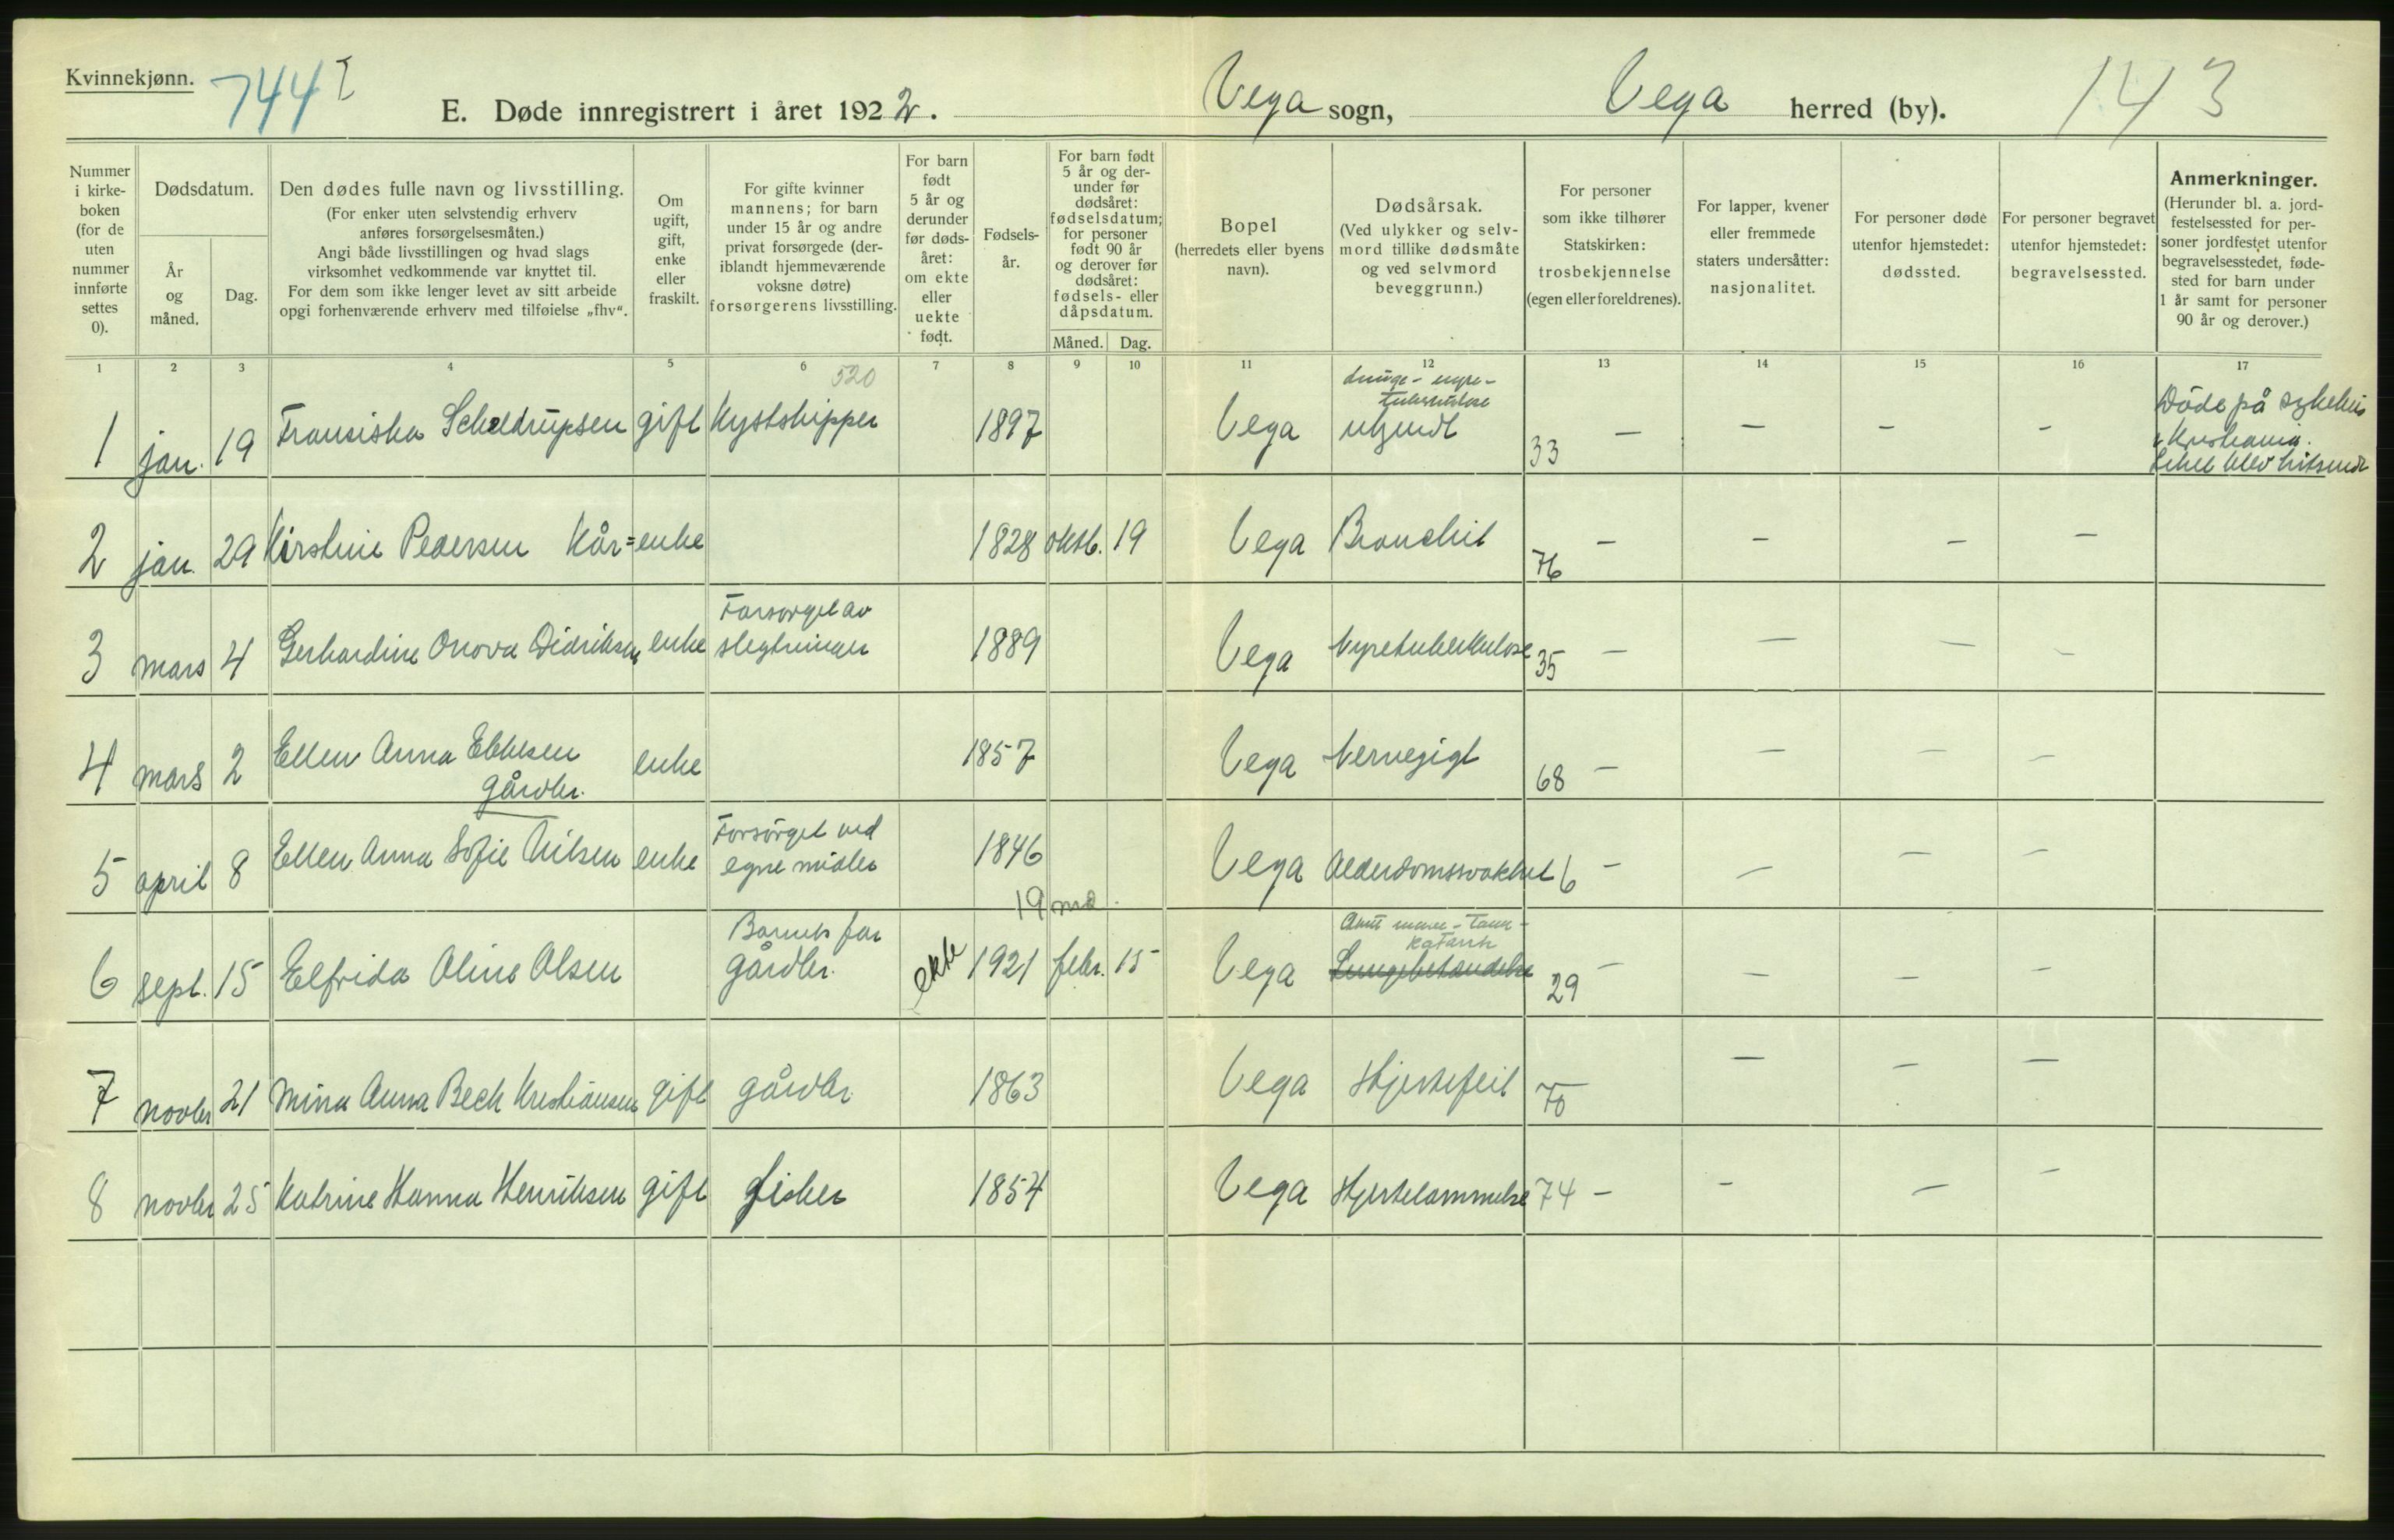 Kvinnekjønn.
744 I
E. Døde innregistrert i året 1922. Vega sogn, Vega herred (by).
143
Nummer i kirke- boken (for de uten nummer innførte settes 0).
Dødsdatum.
År og måned.
Dag.
Den dødes fulle navn og livsstilling.
(For enker uten selvstendig erhverv
anføres forsørgelsesmåten.)
Angi både livsstillingen og hvad slags
virksomhet vedkommende var knyttet til.
For dem som ikke lenger levet av sitt arbeide
opgi forhenværende erhverv med tilføielse „fhv“.
Om
ugift,
gift,
enke
eller
fraskilt.
For gifte kvinner
mannens; for barn
under 15 år og andre
privat forsørgede (der-
iblandt hjemmeværende
voksne døtre)
forsørgerens livsstilling.
For barn
født
5 år og
derunder
før døds-
året:
om ekte
eller
uekte
født.
Fødsels-
år.
For barn født
5 år og der-
under før
dødsåret:
fødselsdatum;
for personer
født 90 år
og derover før
dødsåret:
fødsels- eller
dåpsdatum.
Måned. Dag.
Bopel
(herredets eller byens
navn).
Dødsårsak.
(Ved ulykker og selv-
mord tillike dødsmåte
og ved selvmord
beveggrunn.)
For personer
som ikke tilhører
Statskirken:
trosbekjennelse
(egen eller foreldrenes).
For lapper, kvener
eller fremmede
staters undersåtter:
nasjonalitet.
For personer døde
utenfor hjemstedet:
dødssted.
For personer begravet
utenfor hjemstedet:
begravelsessted.
Anmerkninger.
(Herunder bl. a. jord-
festelsessted for per-
soner jordfestet utenfor
begravelsesstedet, føde-
sted for barn under
1 år samt for personer
90 år og derover.)
1 2 3 4 5 6 7 8 9 10 11 12 13 14 15 16 17
520
Lunge- nyre-
tuberkulose
1 jan. 19 Fransiska Scheldrupsen gift Kystskipper 1897 Vega 33 — — — —
Døde på sykehus
i Kristiania.
2 jan. 29 Kirstine Pedersen Kår= enke 1828 oktb. 19 Vega Bronchit 76 — — — —
Forsørget av
3 mars 4 Gerhardine Onova Didriksen enke slegtninger 1889 Vega Nyretuberkulose 35 — — — —
4 mars 2 Ellen Anna Ebbesen enke 1857 Vega Nervegigt 68 — — — —
gårdbr.
Forsørget ved
5 april 8 Ellen Anna Sofie Nilsen enke egne midler 1846 Vega Alderdomssvakhet 6 — — — —
19 md.
Barnets far
katarrh
6 sept. 15 Elfrida Oline Olsen gårdbr. ekte 1921 febr. 15 Vega Lungebetendelse 29 — — — —
7 novbr 21 Mina Anna Bech Kristiansen gift gårdbr. 1863 Vega Hjertefeil 70 — — —
8 novbr 25 Katrine Hanna Henriksen gift fisker 1854 Vega Hjertelammelse 74 — — — —